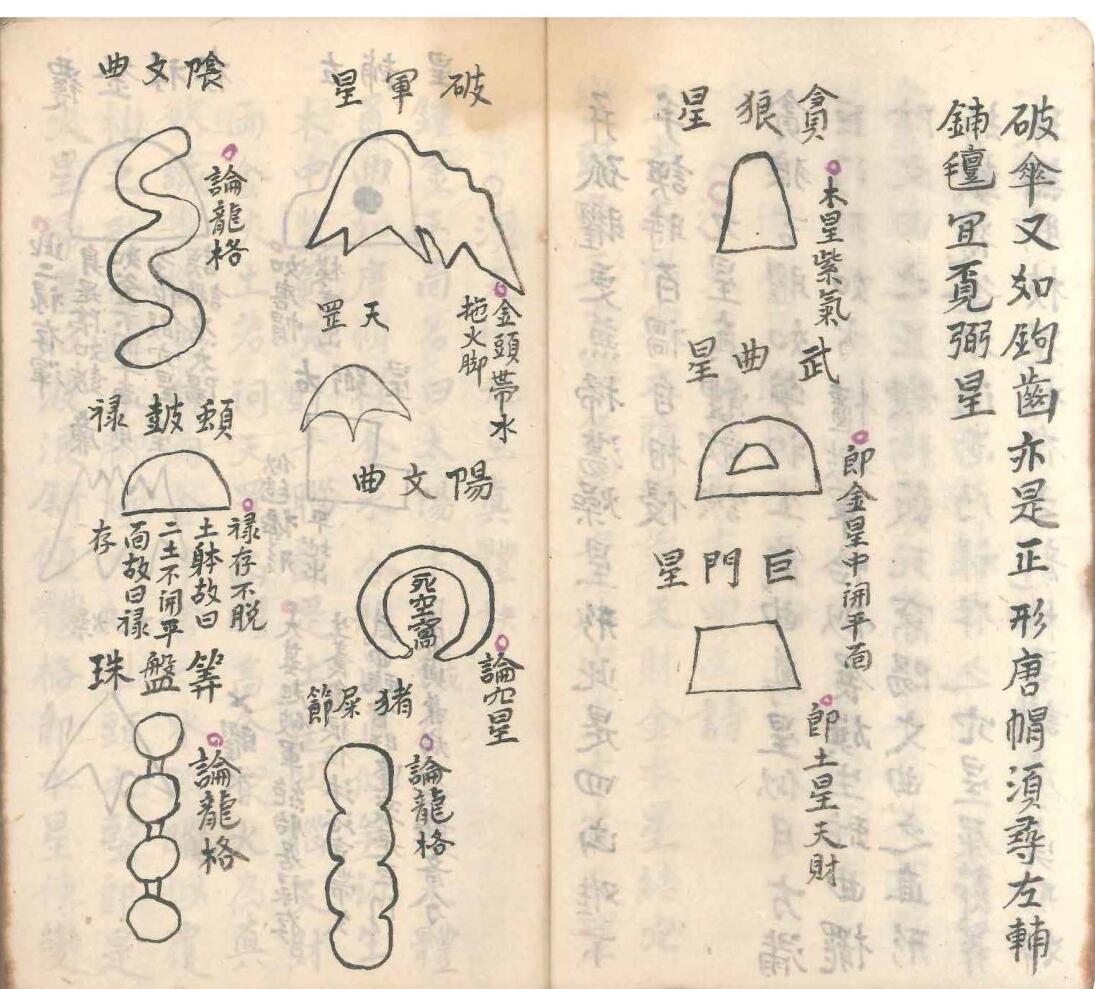 破傘又如鉤齒亦是正形唐帽須尋左輔
鋪氊宜覔弼星
貪狼星
木星紫氣
武曲星
即金星中開平面
巨門星
即土星天財
破軍星
金頭帶水
拖火脚
天罡
陽文曲
死空窩
論九星
猪屎節
論龍格
陰文曲
論龍格
頓皷禄
禄存不脱
土躰故曰
二土不開平
面故曰禄
存
筭盤珠
論龍格